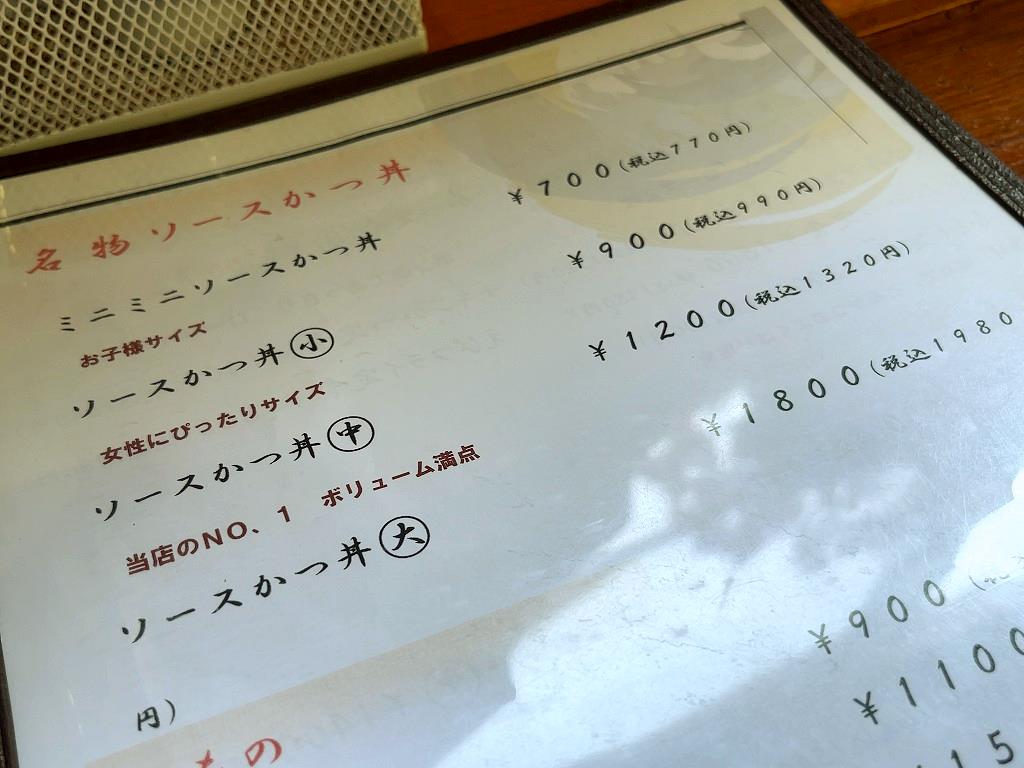 名物ソースかつ丼
ミニミニソースかつ丼　￥７００(税込７７０円)
お子様サイズ
ソースかつ丼㊙小　￥９００(税込９９０円)
女性にぴったりサイズ
ソースかつ丼㊥　￥１２００(税込１３２０円)
当店のＮＯ、１　ボリューム満点
ソースかつ丼大　￥１８００(税込１９８０
円)
もの
￥９００(税
￥１１００
１５